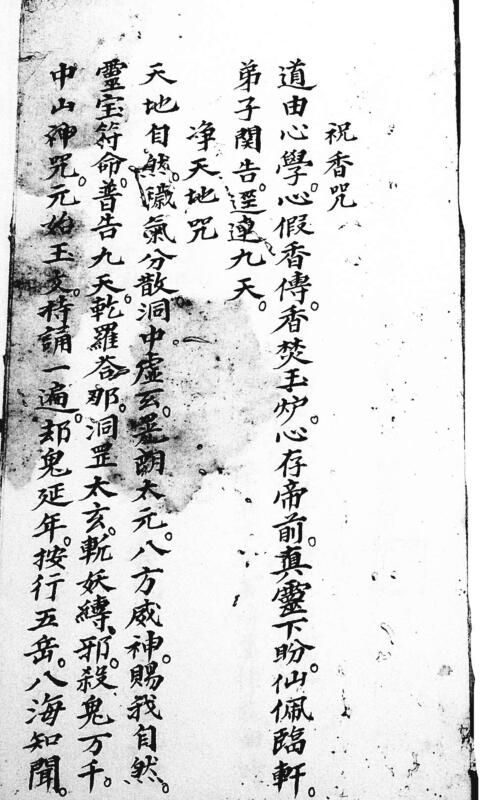 祝香咒
道由心學。心假香傳。香焚玉炉。心存帝前。真靈下盼。仙佩臨軒。
弟子関告。逕達九天。
净天地咒
天地自然。穢氣分散。洞中虚玄。晃朗太元。八方威神。賜我自然。
靈宝符命。普告九天。乾羅荅那。洞罡太玄。斬妖縛邪。殺鬼万千。
中山神咒。元始玉文。持誦一遍。却鬼延年。按行五岳。八海知聞。